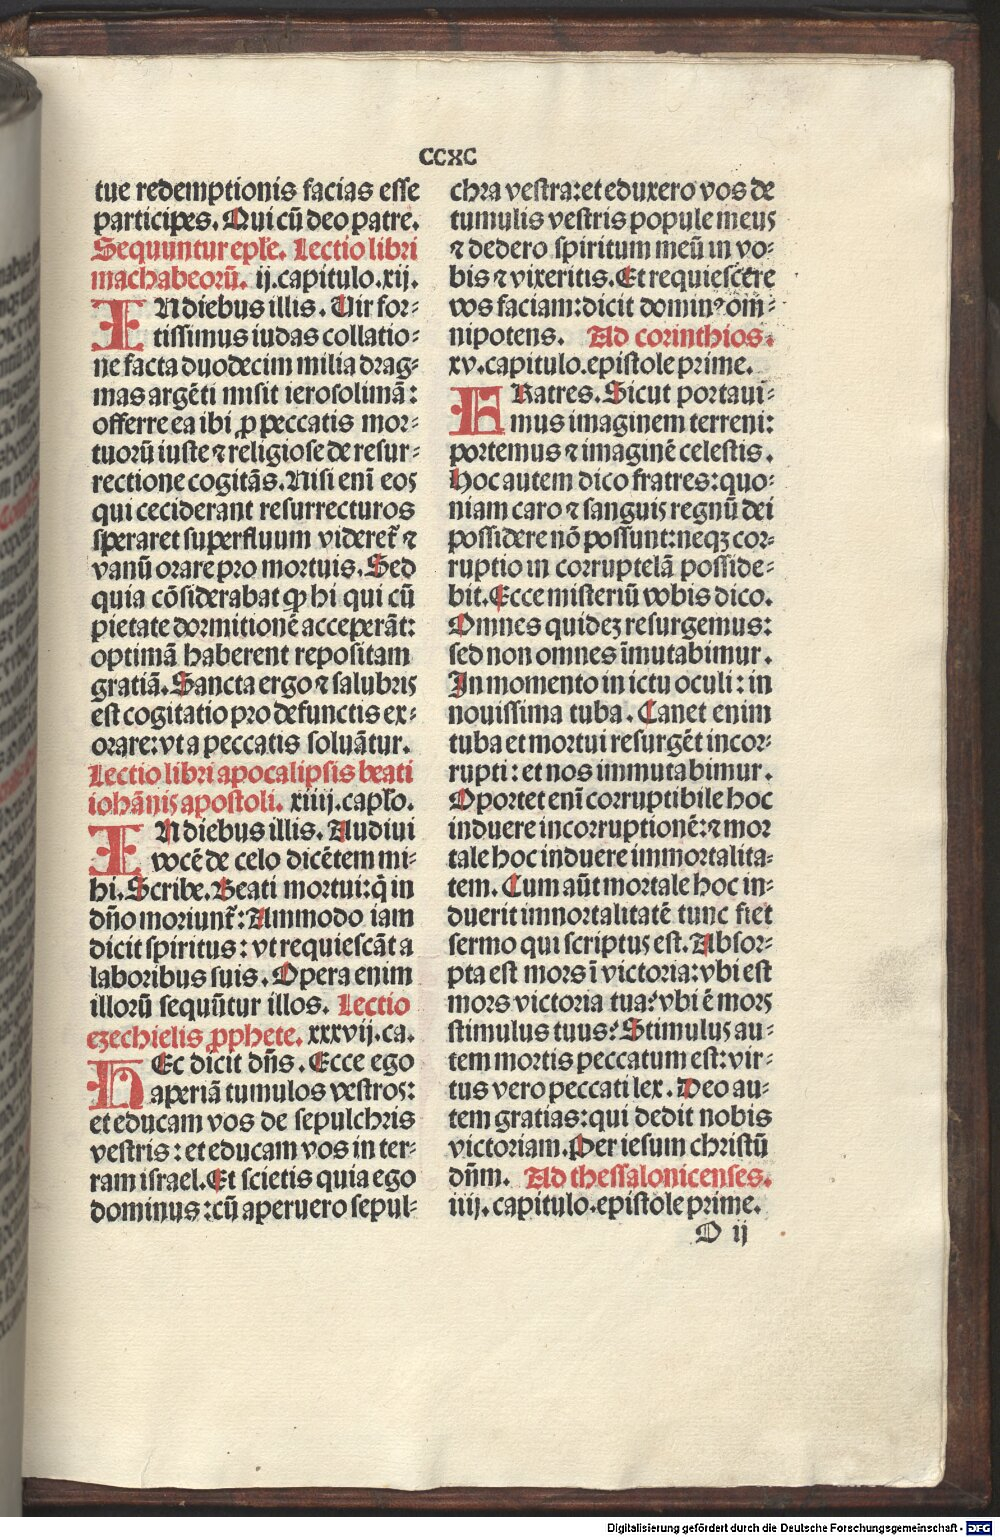 CCXC
tue redemptionis facias esse
participes. Qui cū deo patre.
Sequuntur eple. Lectio libri
machabeorū. ij.capitulo.xij.
IN diebus illis. Uir for⸗
tissimus iudas collatio⸗
ne facta duodecim milia drag⸗
mas argēti misit ierosolimā:
offerre ea ibi ꝓ peccatis mor⸗
tuorū iuste ⁊ religiose de resur⸗
rectione cogitās. Nisi eni eos
qui ceciderant resurrecturos
speraret superfluum videret̄ ⁊
vanū orare pro mortuis. Sed
quia cōsiderabat ꝙ hi qui cū
pietate dormitionē acceperāt:
optimā haberent repositam
gratiā. Sancta ergo ⁊ salubris
est cogitatio pro defunctis ex⸗
orare: vt a peccatis soluātur.
Lectio libri apocalipsis beati
iohānis apostoli. xiiij.caplo.
IN diebus illis. Audiui
vocē de celo dicētem mi⸗
hi. Scribe. Beati mortui: q̄ in
dn̄o moriunt̄: Ammodo iam
dicit spiritus: vt requiescāt a
laboribus suis. Opera enim
illorū sequūtur illos. Lectio
ezechielis ꝓphete. xxxvij.ca.
HEc dicit dn̄s. Ecce ego
aperiā tumulos vestros:
et educam vos de sepulchris
vestris: et educam vos in ter⸗
ram israel. Et scietis quia ego
dominus: cū aperuero sepul⸗
chra vestra: et eduxero vos de
tumulis vestris popule meus
⁊ dedero spiritum meū in vo⸗
bis ⁊ vixeritis. Et requiescere
vos faciam: dicit dominꝰ om̄⸗
nipotens. Ad corinthios.
xv.capitulo.epistole prime.
FRatres. Sicut portaui⸗
mus imaginem terreni:
portemus ⁊ imaginē celestis.
Hoc autem dico fratres: quo⸗
niam caro ⁊ sanguis regnū dei
possidere nō possunt: neqꝫ cor⸗
ruptio in corruptelā posside⸗
bit. Ecce misteriū vobis dico.
Omnes quideꝫ resurgemus:
sed non omnes īmutabimur.
In momento in ictu oculi: in
nouissima tuba. Canet enim
tuba et mortui resurgēt incor⸗
rupti: et nos immutabimur.
Oportet eni corruptibile hoc
induere incorruptionē: ⁊ mor
tale hoc induere immortalita⸗
tem. Cum aūt mortale hoc in⸗
duerit immortalitatē tunc fiet
sermo qui scriptus est. Absor⸗
pta est mors ī victoria: vbi est
mors victoria tua? vbi ē mors
stimulus tuus? Stimulus au⸗
tem mortis peccatum est: vir⸗
tus vero peccati lex. Deo au⸗
tem gratias: qui dedit nobis
victoriam. Per iesum christū
dn̄m. Ad thessalonicenses.
iiij. capitulo.epistole prime.
D ij
Digitalisierung gefördert durch die Deutsche Forschungsgemeinschaft - DFG